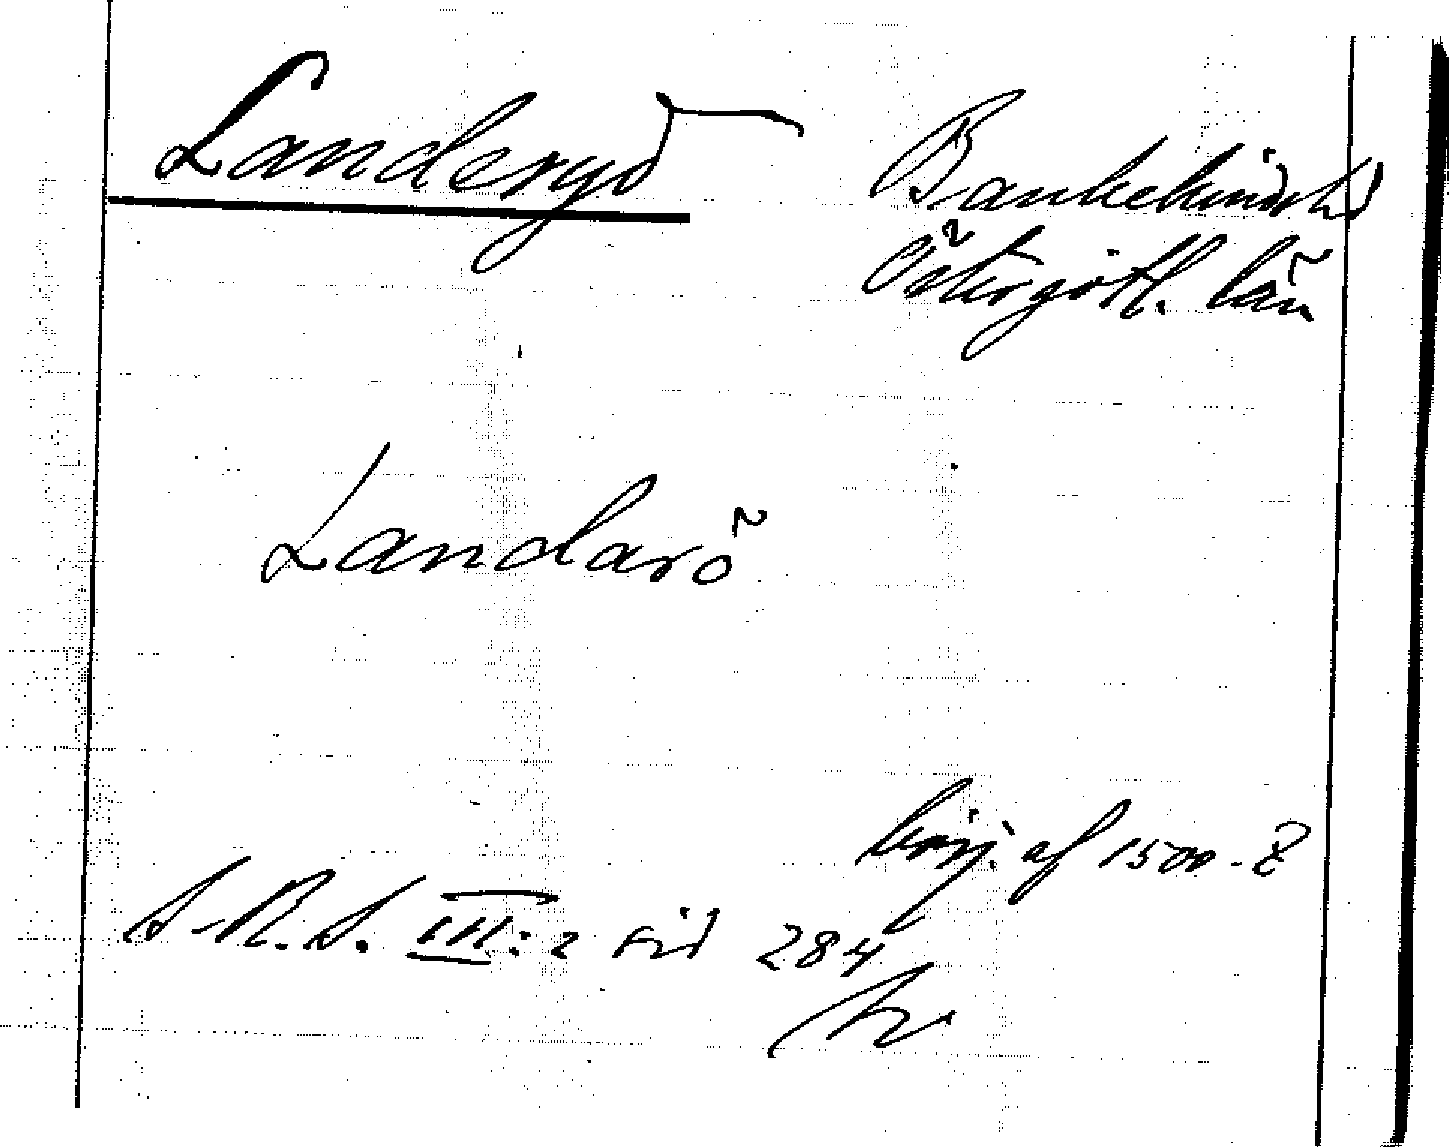 Landeryd
Bankekinds hd
Östergötl. län
Landarö
börj. af 1500-t
S.R.S. III:2 sid 284